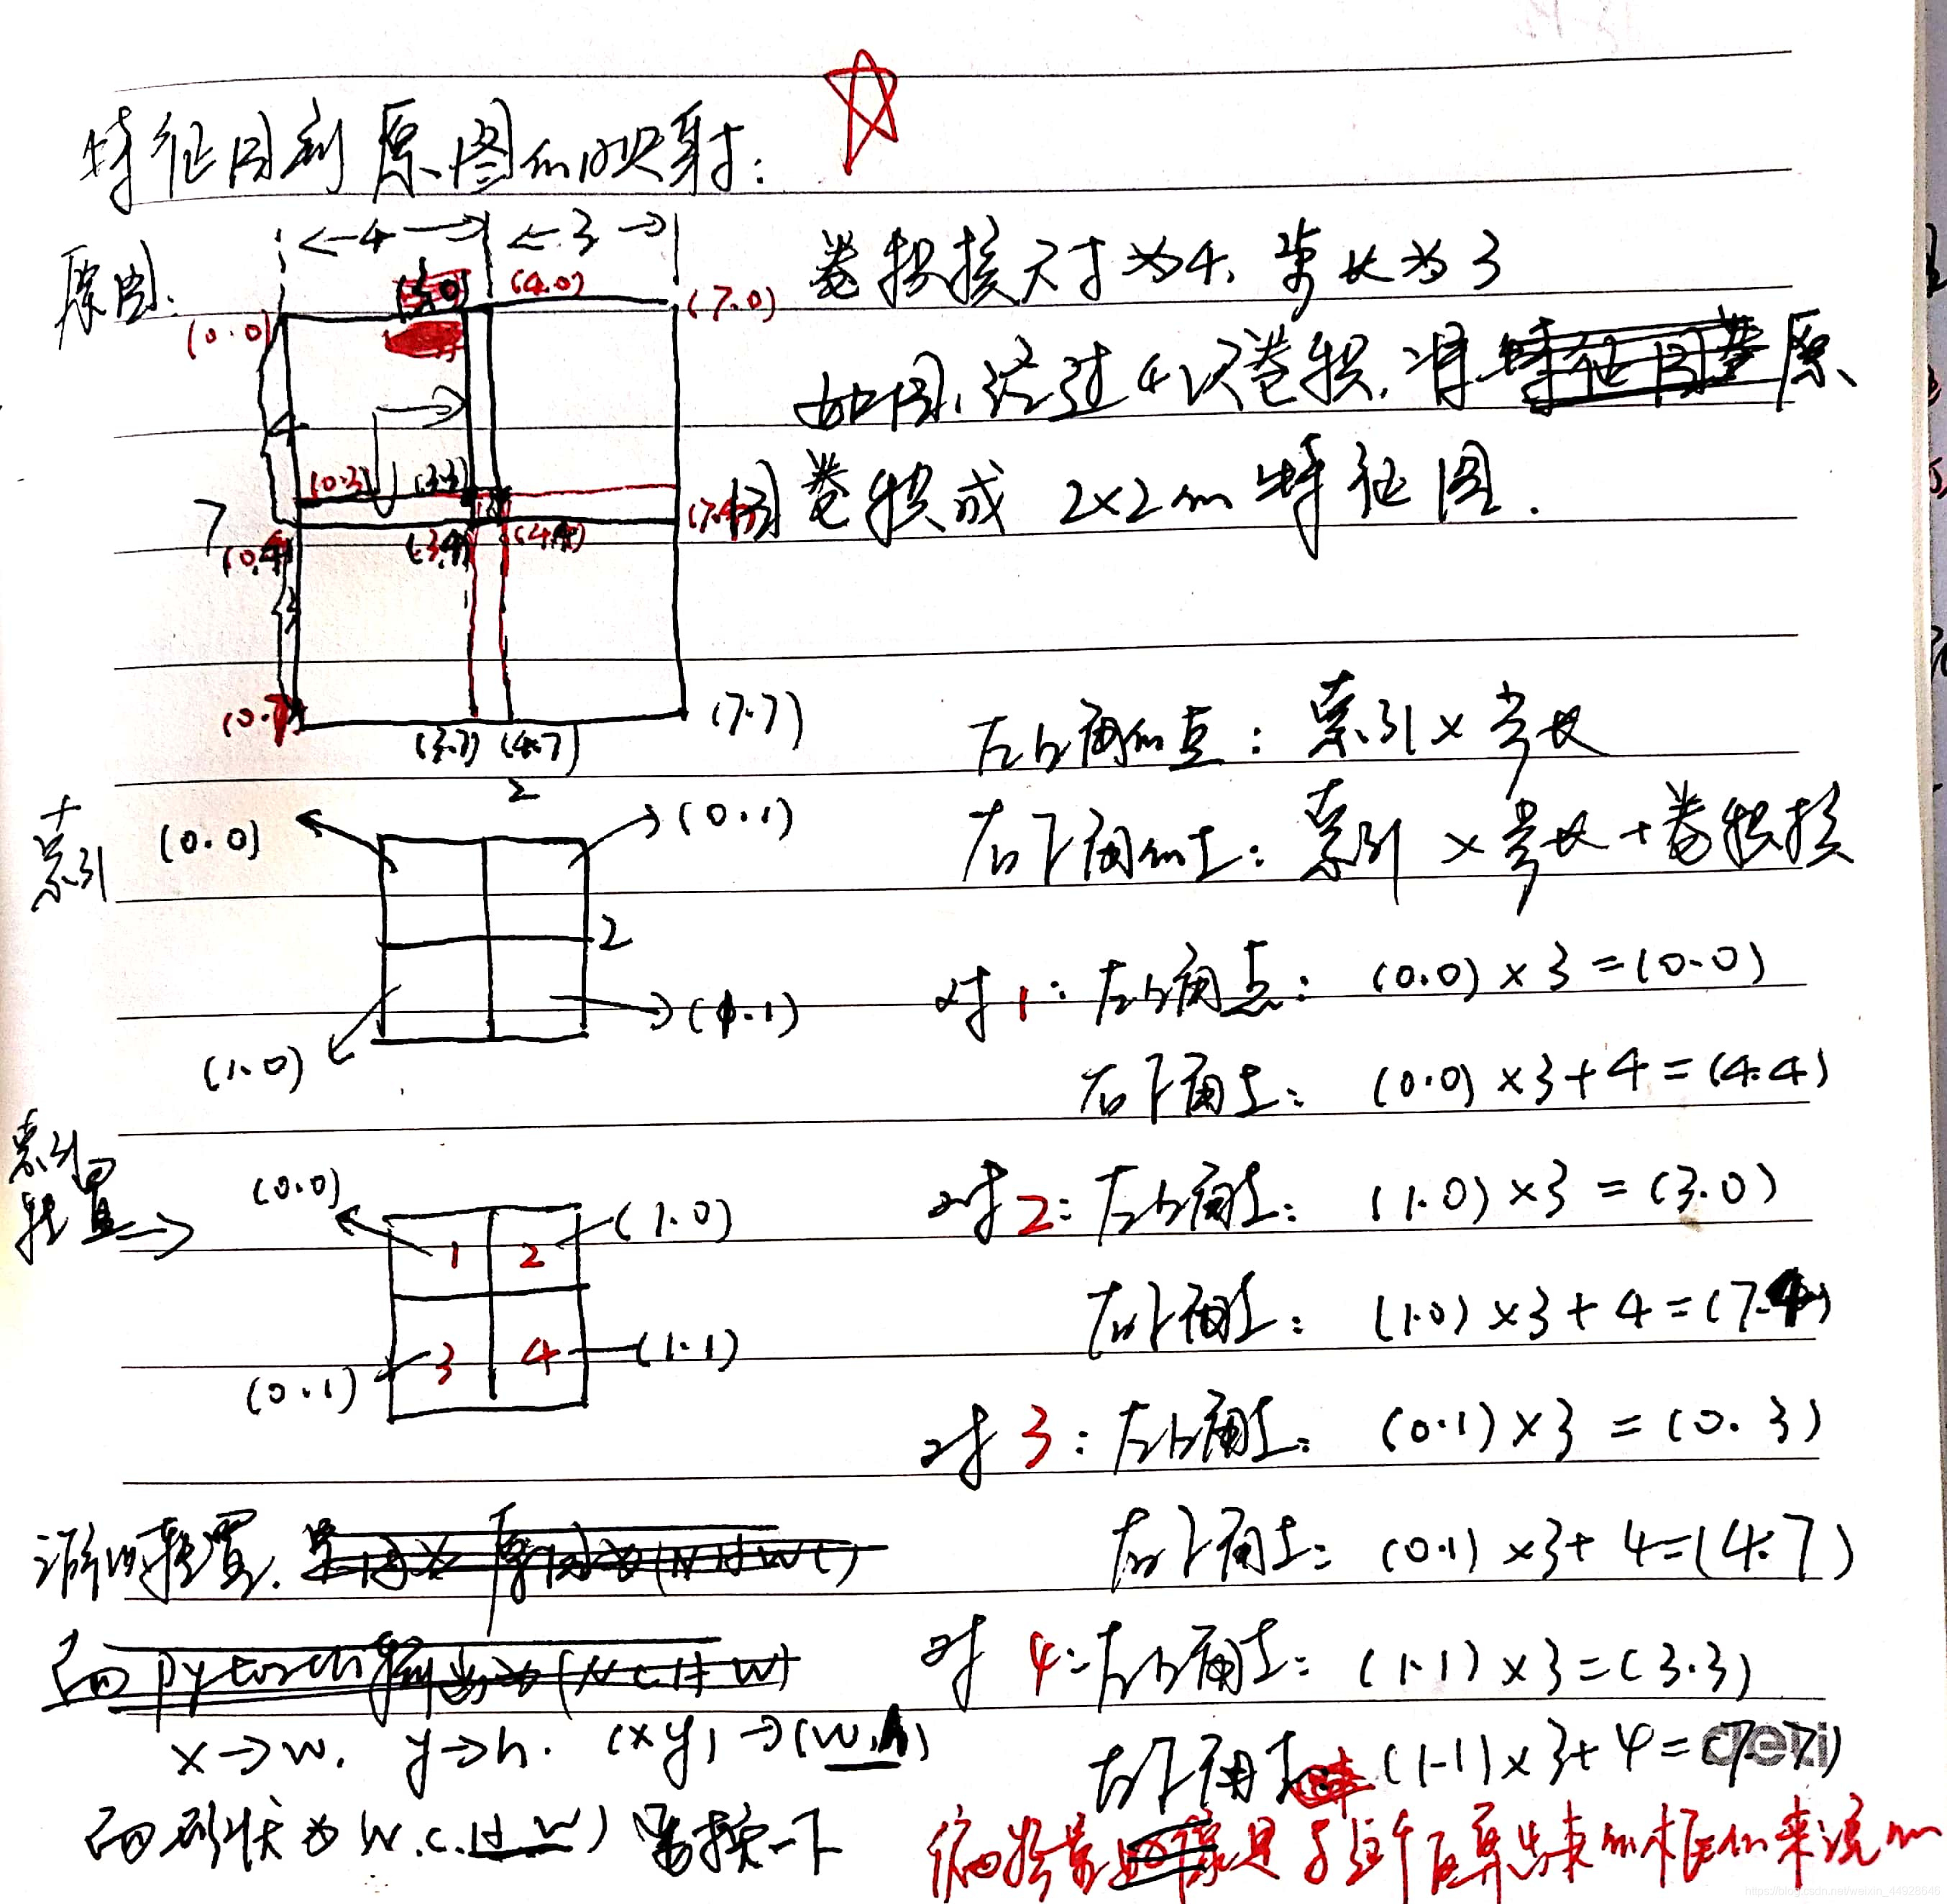 特征图到原图的映射:
原图:
4
3
(3.0)
(4.0)
(7.0)
(0.0)
卷积核尺寸为4, 步长为3
如图,经过4次卷积,将原
图卷积成 2×2的特征图.
4
7
(0.3)
(3.3)
(0.4)
(3.4)
(4.4)
(7.4)
3
(0.7)
(3.7)
(4.7)
(7.7)
左上角的点: 索引×步长
右下角的点: 索引 × 步长 + 卷积核
索引
2
(0.0)
(0.1)
2
(1.0)
(1.1)
对1: 左上角点: (0.0) × 3 = (0.0)
右下角点: (0.0) × 3 + 4 = (4.4)
索引
转置
(0.0)
(1.0)
1
2
3
4
(0.1)
(1.1)
对2: 左上角点: (1.0) × 3 = (3.0)
右下角点: (1.0) × 3 + 4 = (7.4)
对3: 左上角点: (0.1) × 3 = (0.3)
右下角点: (0.1) × 3 + 4 = (4.7)
对4: 左上角点: (1.1) × 3 = (3.3)
右下角点: (1.1) × 3 + 4 = (7.7)
转置.
x→w. y→h. (x y) → (w,h)
而形状为 N.C.H W) 换一下
偏移量是 框 来说的
deli